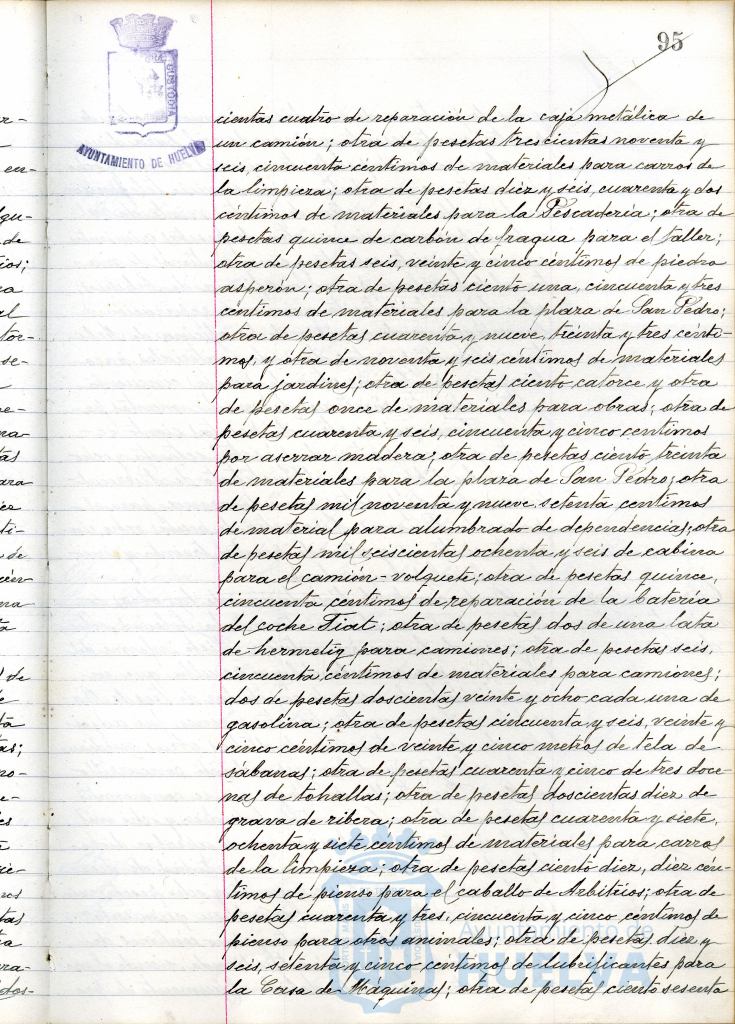 95
CUSTODIA
AYUNTAMIENTO DE HUELVA
cientas cuatro de reparación de la caja metálica de
un camión; otra de pesetas trescientas noventa y
seis, cincuenta céntimos de materiales para carros de
la limpieza; otra de pesetas diez y seis, cuarenta y dos
céntimos de materiales para la Pescadería; otra de
pesetas quince de carbón de fragua para el taller;
otra de pesetas seis, veinte y cinco céntimos de piedra
asperón; otra de pesetas ciento una, cincuenta y tres
céntimos de materiales para la plaza de San Pedro;
otra de pesetas cuarenta y nueve, treinta y tres cénti-
mos, y otra de noventa y seis céntimos de materiales
para jardines; otra de pesetas ciento catorce y otra
de pesetas once de materiales para obras; otra de
pesetas cuarenta y seis, cincuenta y cinco centimos
por aserrar madera; otra de pesetas ciento treinta
de materiales para la plaza de San Pedro; otra
de pesetas mil noventa y nueve, setenta centimos
de material para alumbrado de dependencias; otra
de pesetas mil seiscientas ochenta y seis de cabina
para el camión-volquete; otra de pesetas quince,
cincuenta céntimos de reparación de la batería
del coche Fiat; otra de pesetas dos de una lata
de hermetig para camiones; otra de pesetas seis,
cincuenta céntimos de materiales para camiones;
dos de pesetas doscientas veinte y ocho cada una de
gasolina; otra de pesetas cincuenta y seis, veinte y
cinco céntimos de veinte y cinco metros de tela de
sábanas; otra de pesetas cuarenta y cinco de tres doce-
nas de tohallas; otra de pesetas doscientas diez de
grava de ribera; otra de pesetas cuarenta y siete,
ochenta y siete centimos de materiales para carros
de la limpieza; otra de pesetas ciento diez, diez cén-
timos de pienso para el caballo de Arbitrios; otra de
pesetas cuarenta y tres, cincuenta y cinco céntimos de
pienso para otros animales; otra de pesetas diez y
seis, setenta y cinco centimos de lubrificantes para
la Casa de Máquinas; otra de pesetas ciento sesenta
Ayuntamiento de
HUELVA